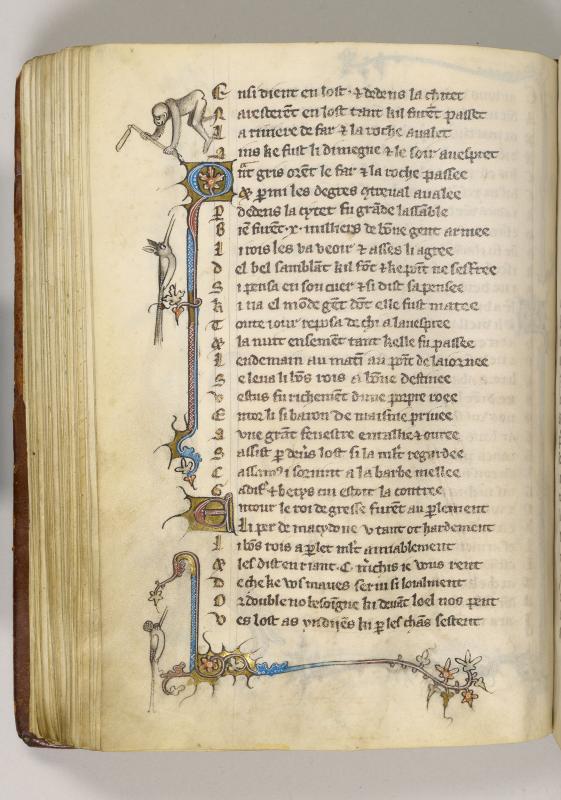 E nsi vient en lost · ⁊ dedens la citet
N aresterēt en lost tant kil furēt passet
L a riuiere de far ⁊ la roche aualet
A ins ke fust li dimegne ⁊ le soir auespret
Q nt gris orēt le far ⁊ la roche passee
⁊ p mi les degres aualee
P dedens la cytet fu grāde lassāble
B iē furēt · x · milliers de bōne gent armee
L i rois les va veoir ⁊ asses li agree
D el bel samblāt kil fōt ⁊ ke pōīt ne
S i pensa en son cuer ⁊ si dist sa pensee
K i na el mōde gēt dōt elle fust matee
T oute iour reposa de chi a lauespree
⁊ la nuit ensemēt tant kelle fu passee
L endemain au matī au pōīt de laiornee
S e leua li bōs rois a bōne destinee
V estus fu richemēt dune pȝpre roee
E ntor li si baron de maisnie priuee
A vne grāt fenestre entaillie ⁊ ouree
S assist p deuēs lost si la mlt regardee
C assam⁹ i soruint a la barbe mellee
G adif ⁊ betys cui estoit la contree
E ntour le roi de gresse furēt au plement
L i per de macydone v tant ot hardement
L i bōs rois aplet mlt amiablement
⁊ les dist en riant · C · mchis ie vous rent
D e che ke vos maues serui si loialment
O r double no besoigne ki deuāt loel nos pent
V es lost as yndiiēs ki p les chās sestent